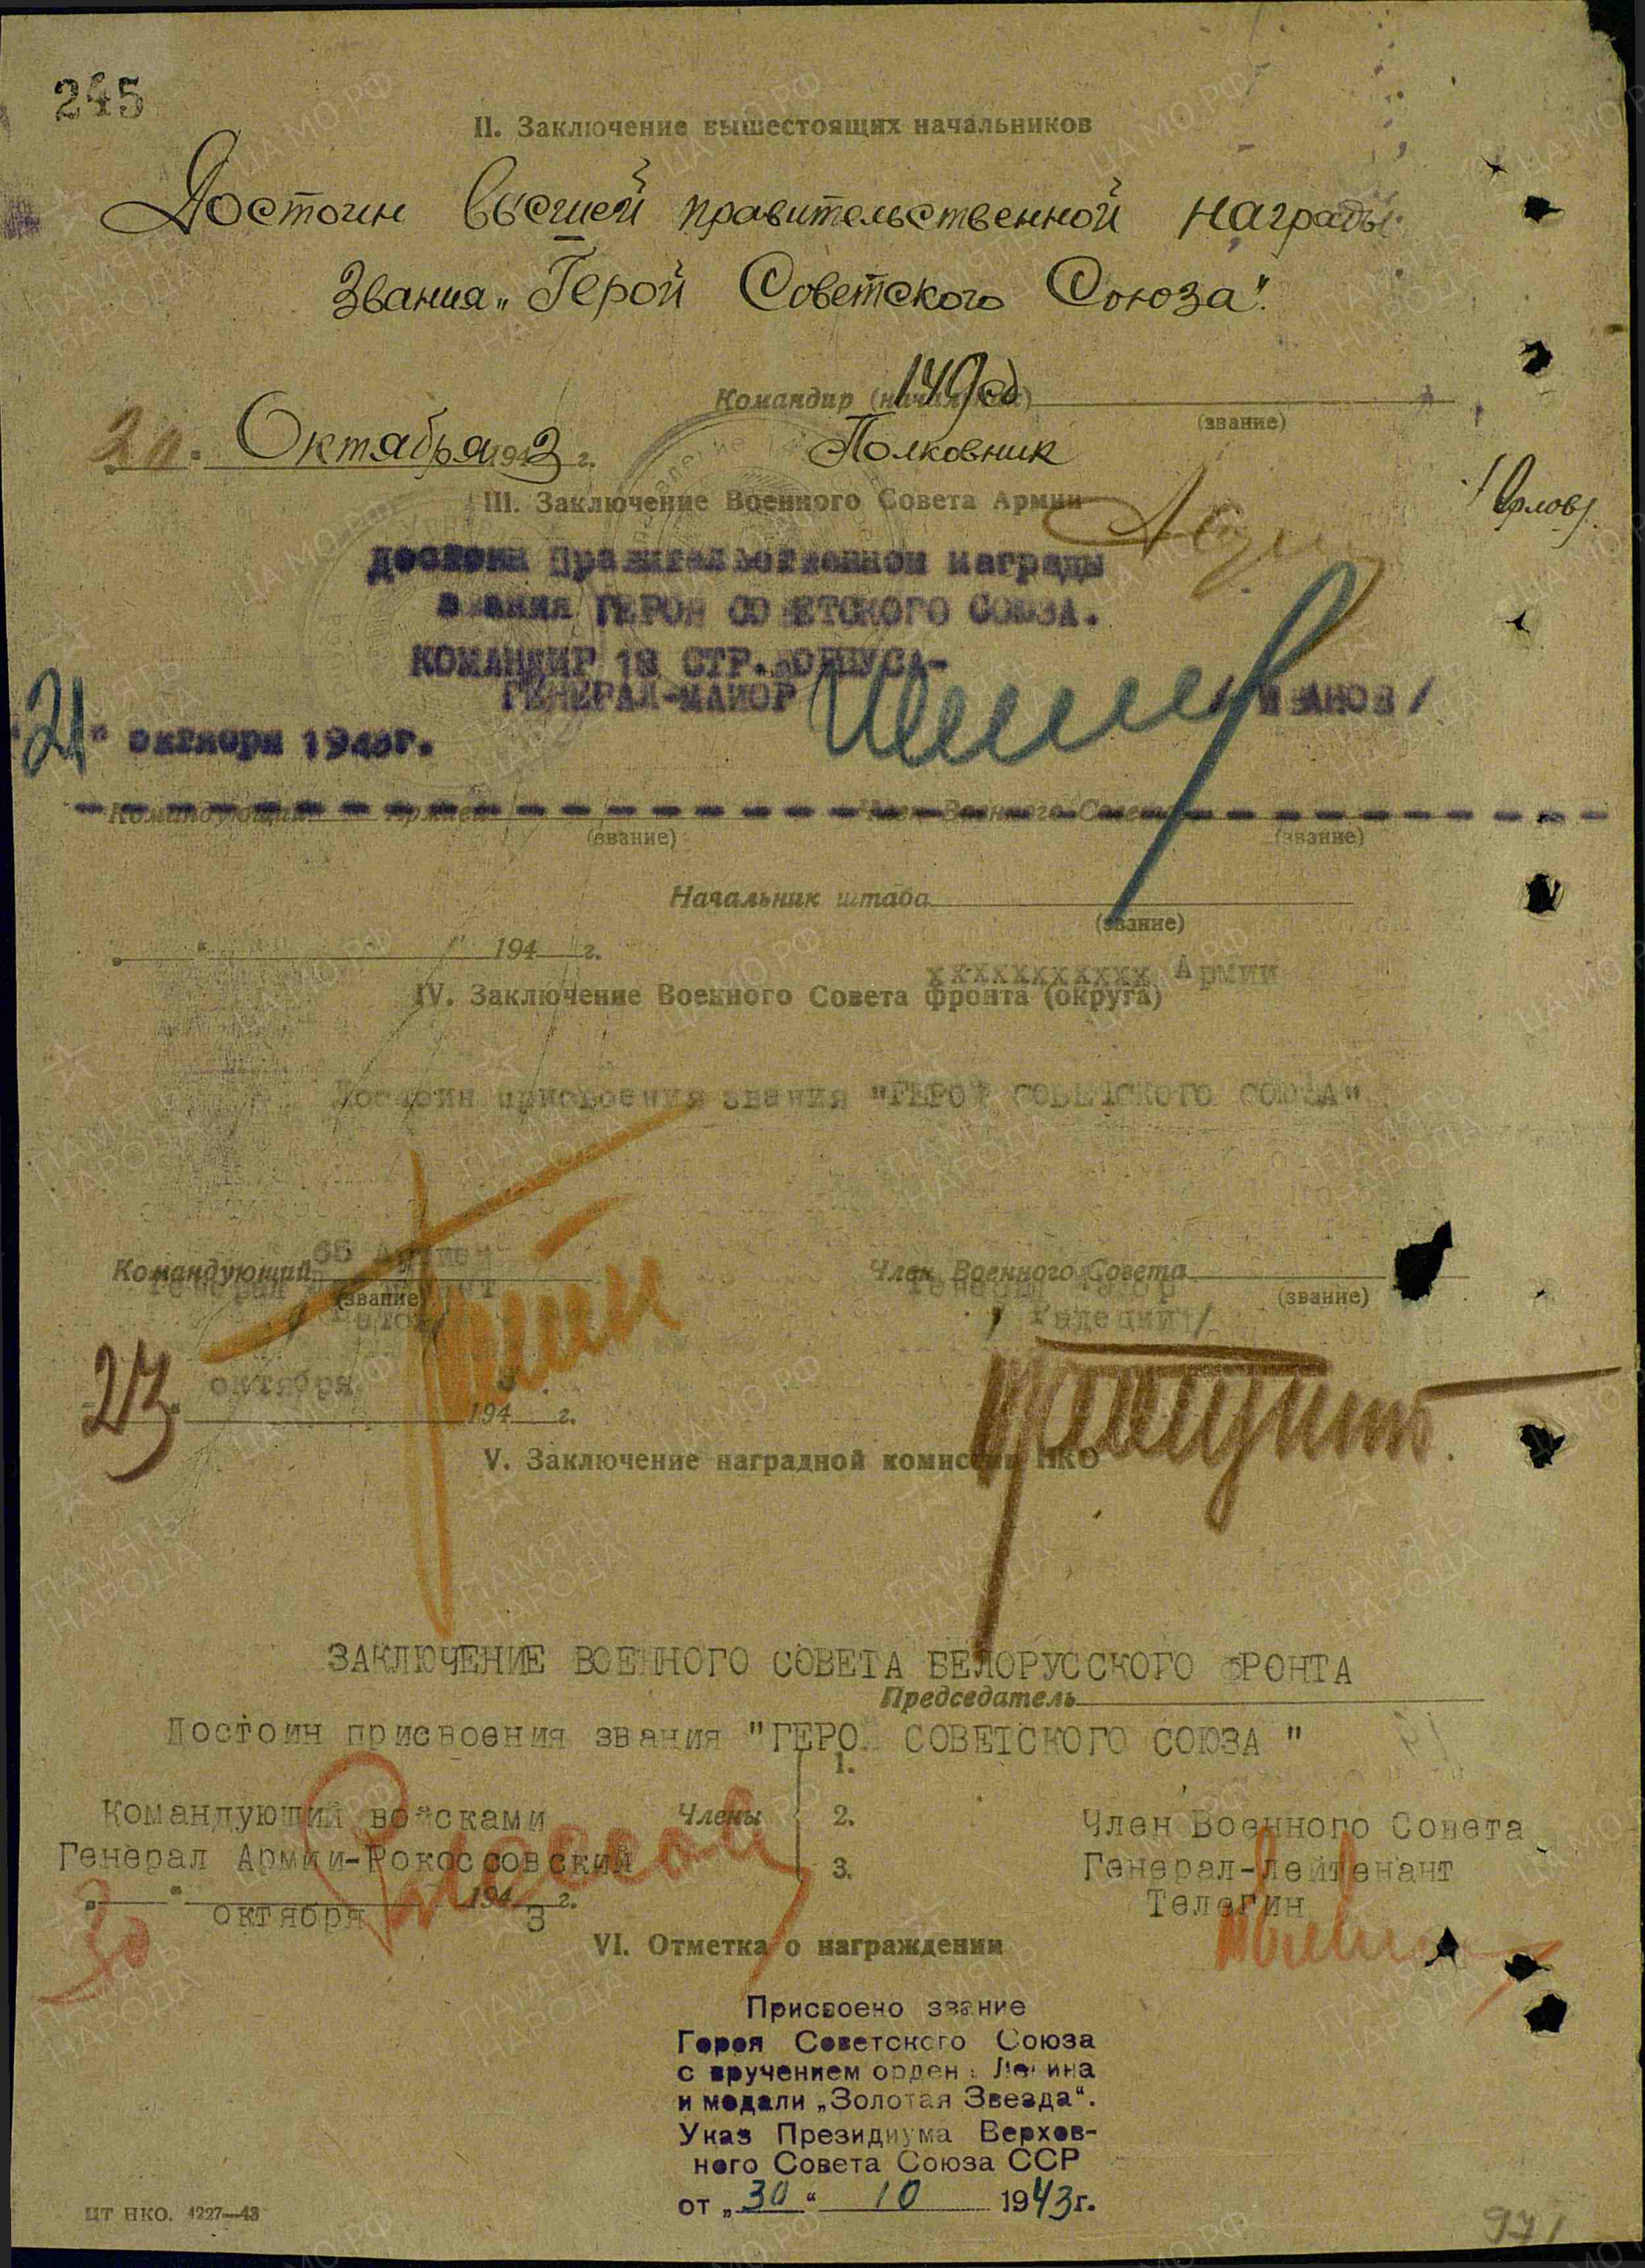 245
II. Заключение вышестоящих начальников
Достоин высшей правительственной награды
Звания „Герой Советского Союза".
Командир (начальник) 149 сд
(звание)
20. Октября 1943 г. Полковник
/Орлов/.
III. Заключение Военного Совета Армии
достоин Правительственной награды
звания ГЕРОЯ СОВЕТСКОГО СОЮЗА.
КОМАНДИР 18 СТР. КОРПУСА-
ГЕНЕРАЛ-МАЙОР /ИВАНОВ/
"21" октября 1943г.
Командующий Армией Член Военного Совета
(звание) (звание)
Начальник штаба
(звание)
„ " 194 г.
ххххххххххх Армии
IV. Заключение Военного Совета фронта (округа)
Достоин присвоения звания "ГЕРОЙ СОВЕТСКОГО СОЮЗА"
Командующий 65 Армией Член Военного Совета
Генерал Генерал Майор
(звание) (звание)
/Радецкий/
23 октября 1943 г.
V. Заключение наградной комиссии НКО
ЗАКЛЮЧЕНИЕ ВОЕННОГО СОВЕТА БЕЛОРУССКОГО ФРОНТА
Председатель
Достоин присвоения звания "ГЕРОЙ СОВЕТСКОГО СОЮЗА "
1.
Командующий войсками Члены 2. Член Военного Совета
Генерал Армии-Рокоссовский 3. Генерал-Лейтенант
Телегин
30 октября 1943 г.
VI. Отметка о награждении
Присвоено звание
Героя Советского Союза
с вручением ордена Ленина
и медали „Золотая Звезда".
Указ Президиума Верхов-
ного Совета Союза ССР
от „30" 10 1943г.
ЦТ НКО. 4227—43
971